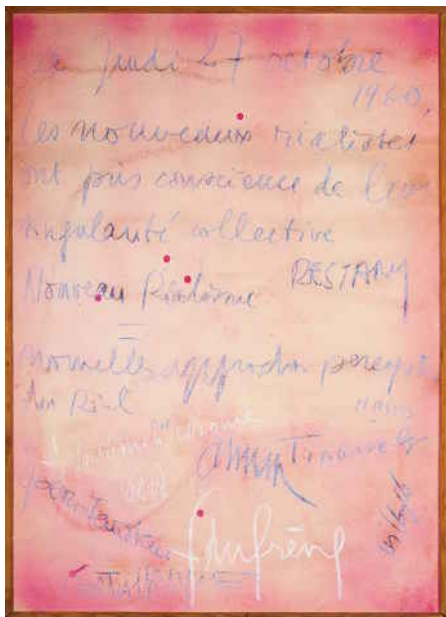 Le Jeudi 27 octobre
1960,
les nouveaux réalistes
ont pris conscience de leur
singularité collective
Nouveau Réalisme
RESTANY
=
nouvelles approches perceptives
du Réel
Hains
le monochrome
Arman Tinguely
Dufrêne